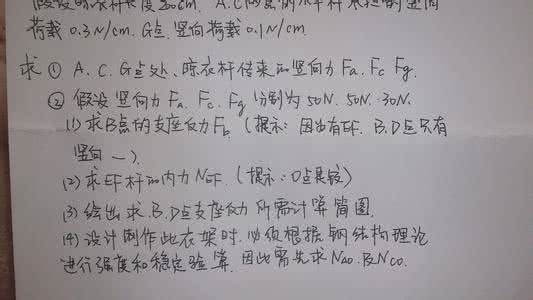 假设晾衣杆长度为80cm. A.C两点晾衣杆承担的竖向
荷载0.3N/cm. G点竖向荷载0.1N/cm.
求 ① A. C. G点处、晾衣杆传来的竖向力Fa. Fc Fg.
② 假设竖向力Fa. Fc. Fg分别为50N. 50N. 30N.
(1) 求B点的支座反力Fb. (提示: 因为有EF. B.D点只有
竖向一).
(2) 求EF杆的内力NEF. (提示: O点是铰)
(3) 绘出求.B.D点支座反力所需计算简图.
(4) 设计制作此衣架时.必须根据钢结构理论
进行强度和稳定验算.因此需先求NAO.及NCO.